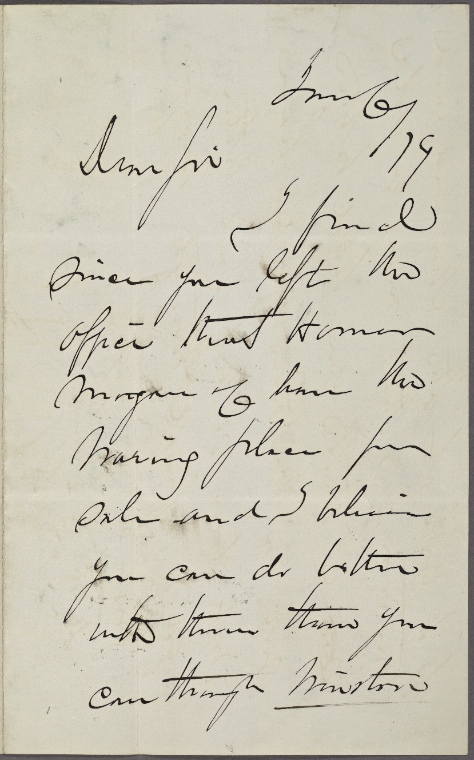 Jan 6/79
Dear Sir
I find
since you left the
office that Homer
Morgan & have the
Waring place for
sale and I believe
you can do better
with them than you
can through Winston